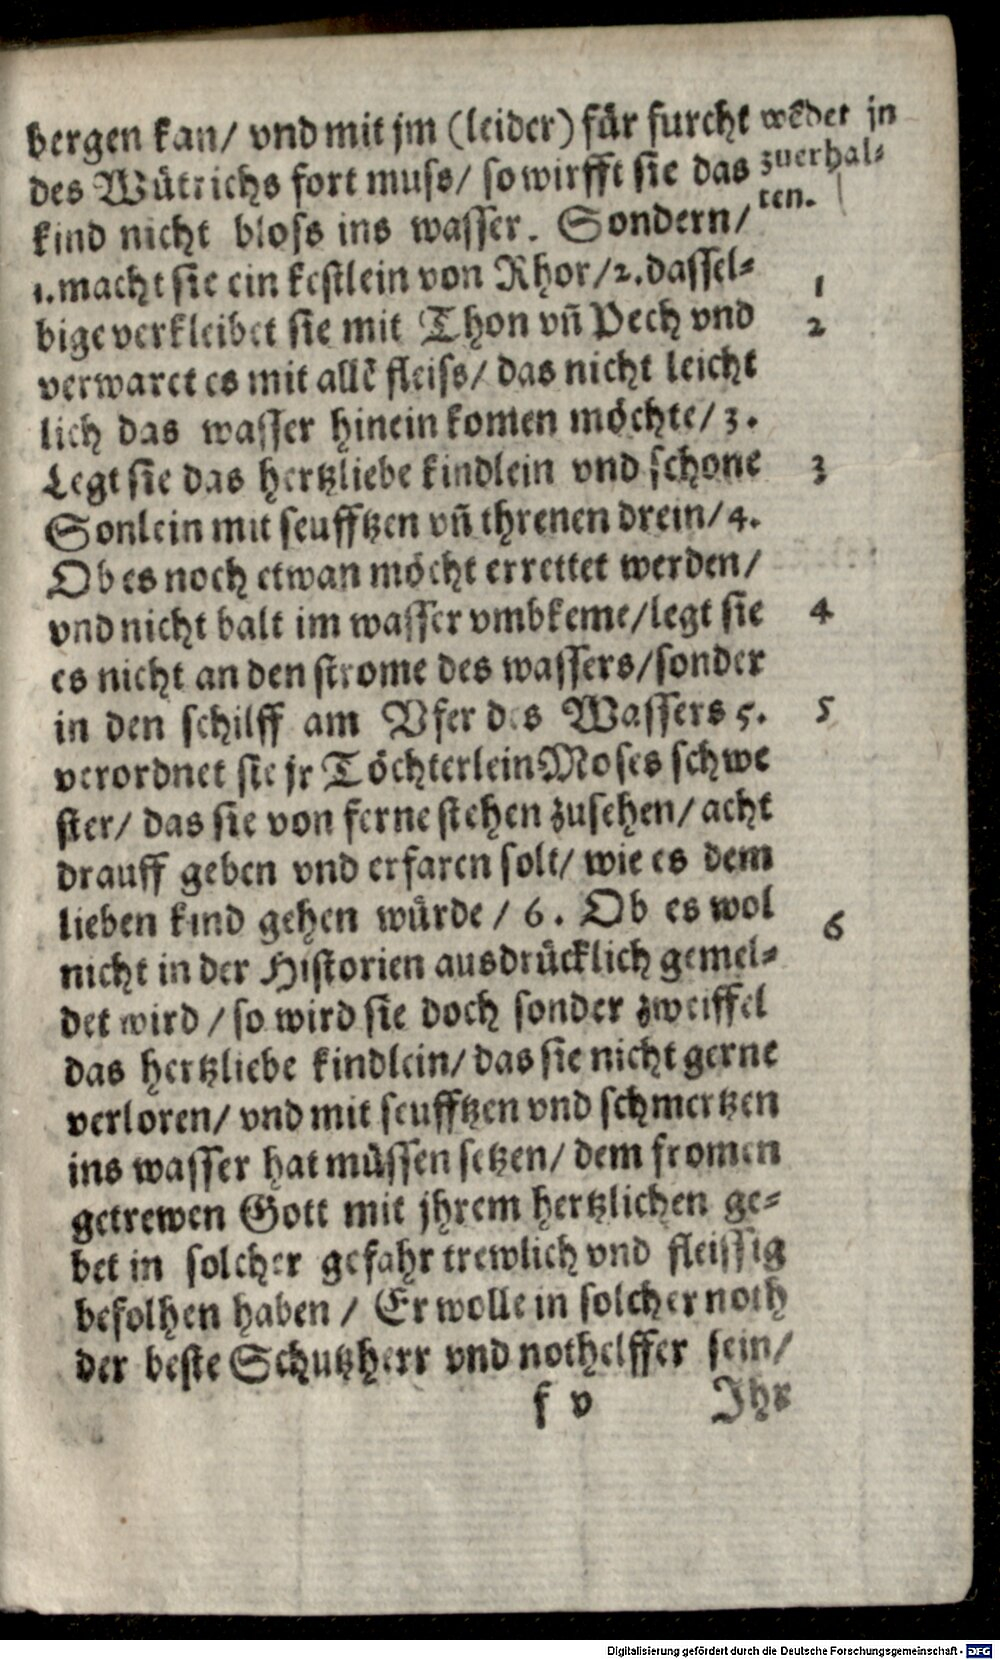 bergen kan/ vnd mit jm (leider) für furcht
des Wütrichs fort muss/ so wirfft sie das
kind nicht bloss ins wasser. Sondern/
1. macht sie ein kestlein von Rhor/ 2. dassel⸗
bige verkleibet sie mit Thon vñ Pech vnd
verwaret es mit allẽ fleiss/ das nicht leicht
lich das wasser hinein komen möchte/ 3.
Legt sie das hertzliebe kindlein vnd schone
Sonlein mit seufftzen vñ threnen drein/ 4.
Ob es noch etwan möcht errettet werden/
vnd nicht balt im wasser vmbkeme/ legt sie
es nicht an den strome des wassers/ sonder
in den schilff am Vfer des Wassers 5.
verordnet sie jr Töchterlein Moses schwe
ster/ das sie von ferne stehen zusehen/ acht
drauff geben vnd erfaren solt/ wie es dem
lieben kind gehen würde / 6. Ob es wol
nicht in der Historien ausdrücklich gemel⸗
det wird / so wird sie doch sonder zweiffel
das hertzliebe kindlein/ das sie nicht gerne
verloren/ vnd mit seufftzen vnd schmertzen
ins wasser hat müssen setzen/ dem fromen
getrewen Gott mit jhrem hertzlichen ge⸗
bet in solcher gefahr trewlich vnd fleissig
befolhen haben / Er wolle in solcher noth
der beste Schutzherr vnd nothelffer sein/
f v
Ihr
wẽder jn
zuerhal⸗
ten.
1
2
3
4
5
6
Digitalisierung gefördert durch die Deutsche Forschungsgemeinschaft - DFG